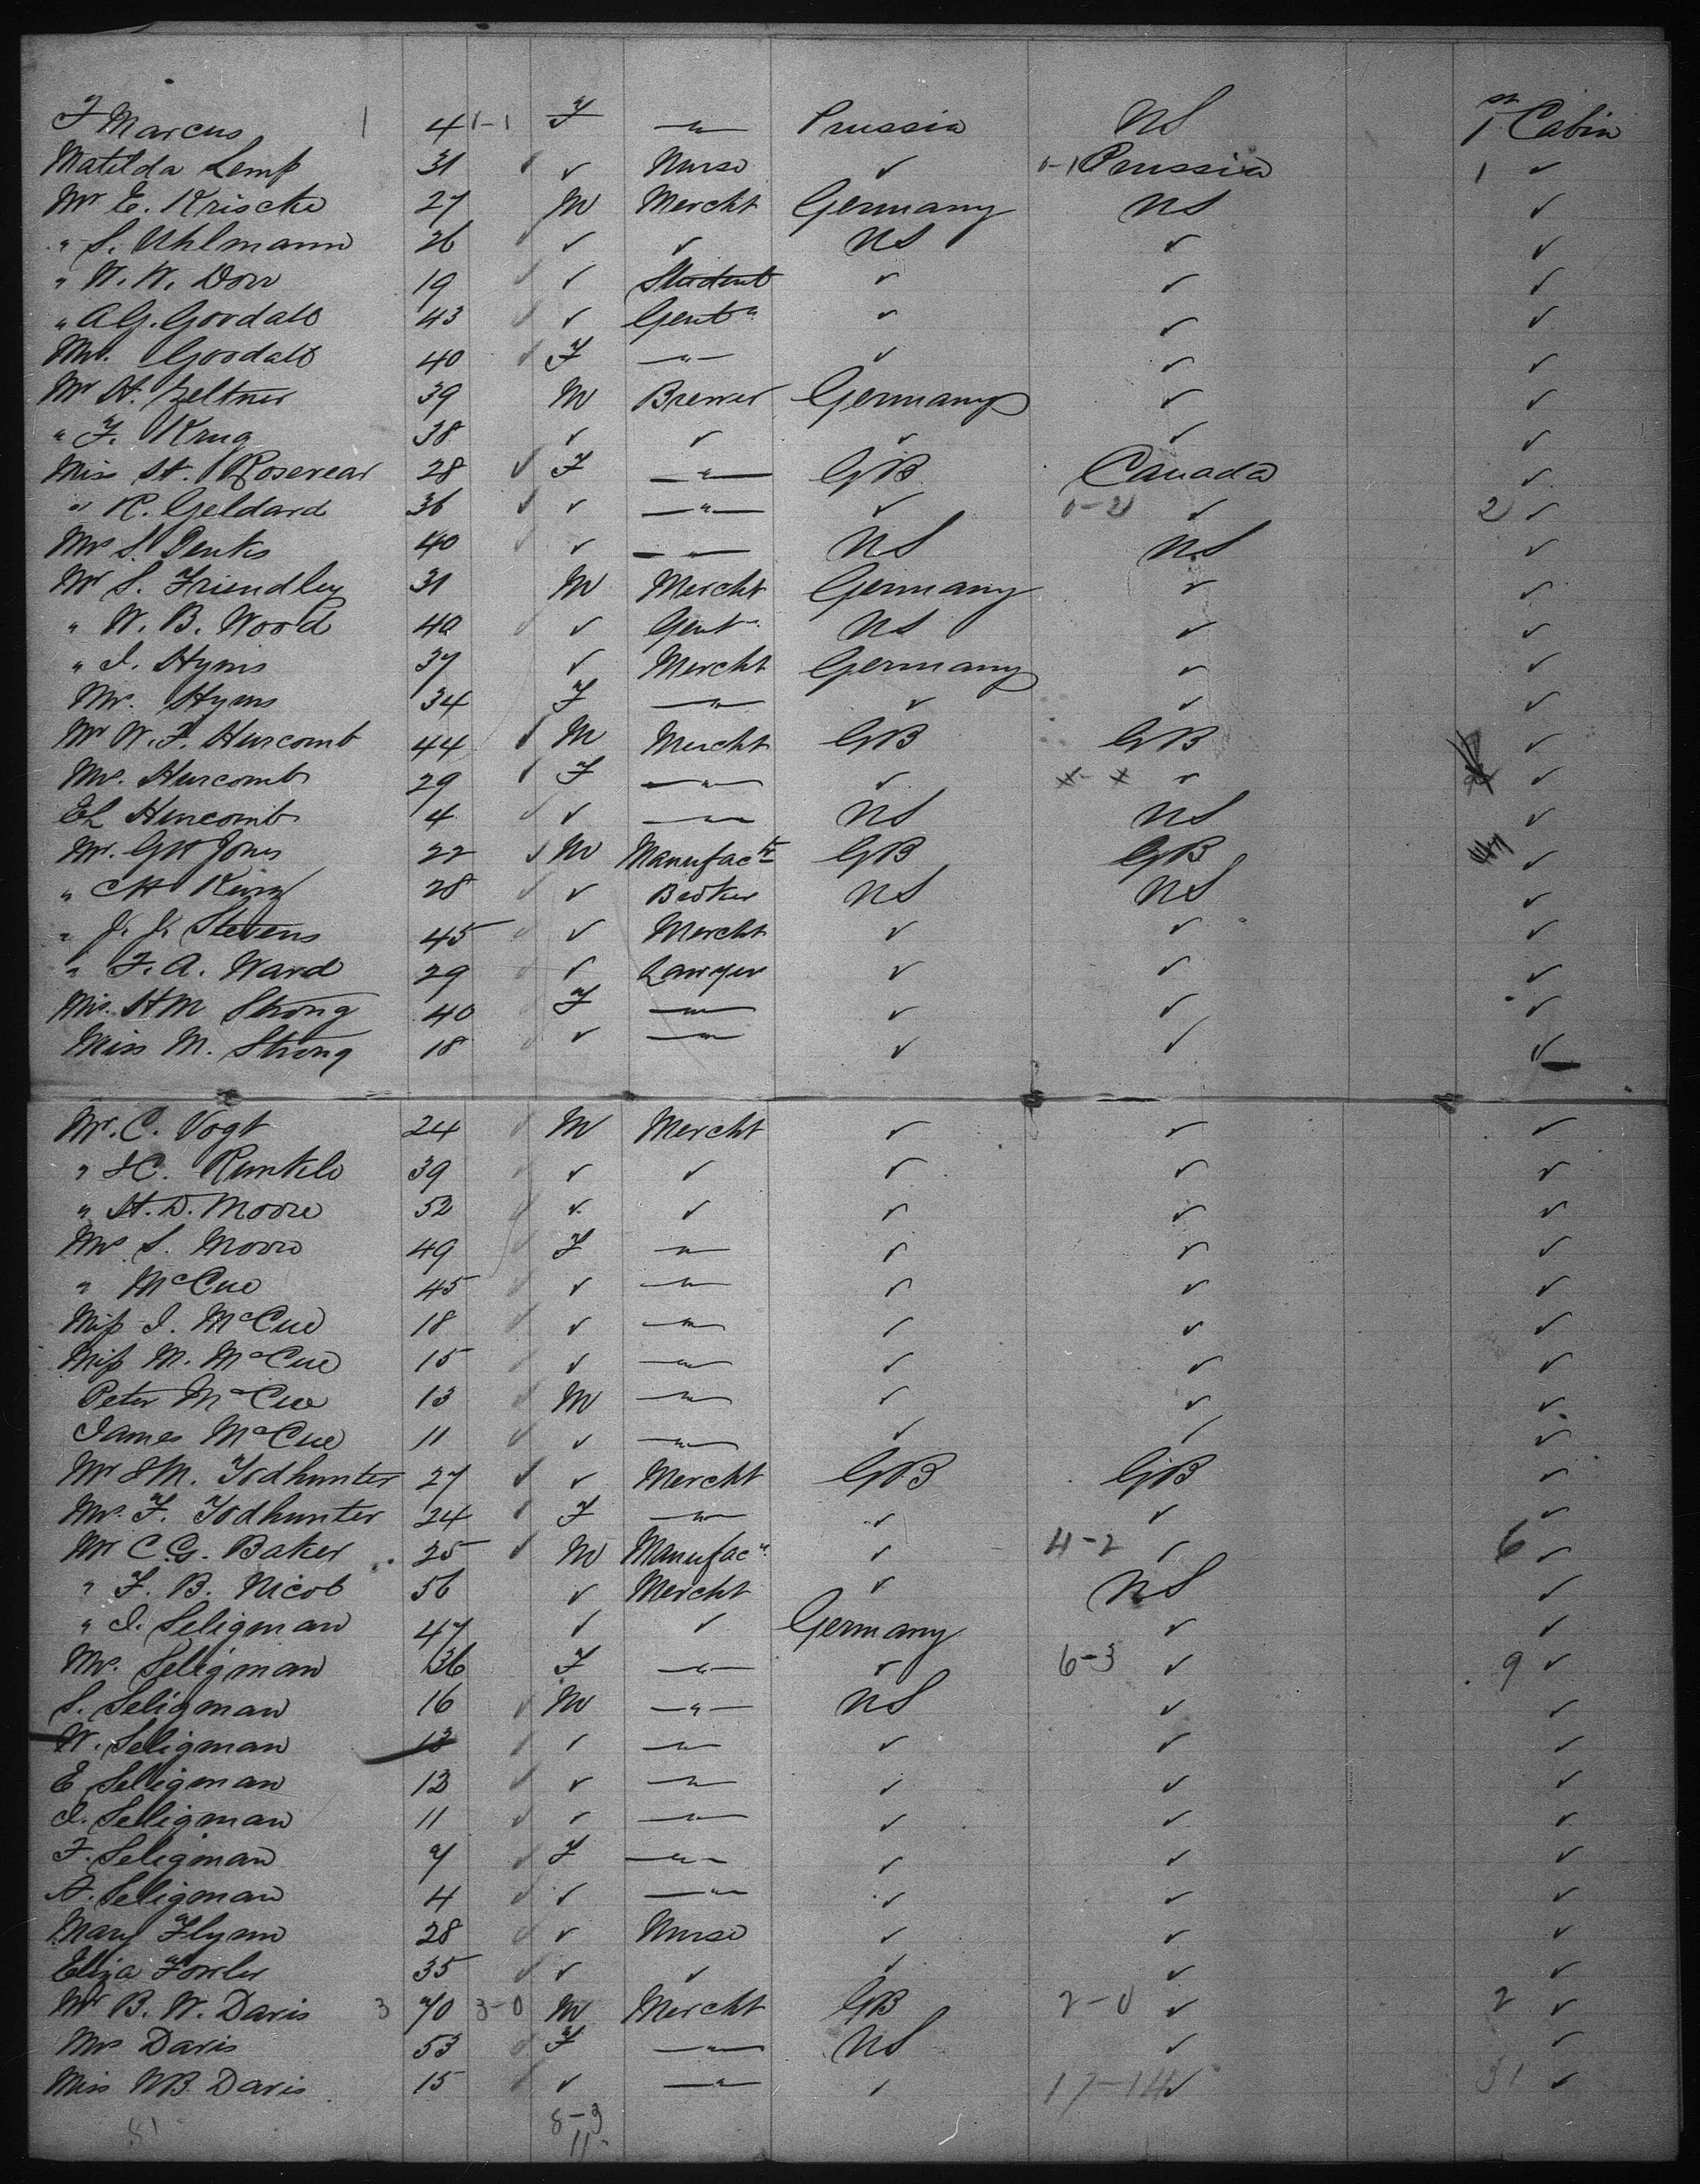 F Marcus 1 4 1-1 F —"— Prussia US 1st Cabin
Matilda Lemp 31 ✓ ✓ Nurse ✓ 0-1 Prussia 1 ✓
Mr E. Krische 27 M Mercht Germany US ✓
" S. Uhlmann 26 ✓ ✓ ✓ US ✓ ✓
" W. W. Dorr 19 ✓ ✓ Student ✓ ✓ ✓
" A G. Goodall 43 ✓ ✓ Gent" ✓ ✓ ✓
Mrs. Goodall 40 ✓ F —"— ✓ ✓ ✓
Mr H. Zeltner 39 M Brewer Germany ✓ ✓
" F. Krug 38 ✓ ✓ ✓ ✓ ✓
Miss H. Roserear 28 ✓ F —"— GB Canada ✓
" R. Geldard 36 ✓ ✓ —"— ✓ 0-2 ✓ 2 ✓
Mrs S. Jenks 40 ✓ ✓ —"— US US ✓
Mr S. Friendley 31 M Mercht Germany ✓ ✓
" W. B. Wood 40 ✓ ✓ Gent" US ✓ ✓
" I. Hyms 37 ✓ Mercht Germany ✓ ✓
Mrs. Hyms 34 F —"— ✓ ✓ ✓
Mr W. F. Hurcomb 44 ✓ M Mercht GB GB ✓
Mrs. Hurcomb 29 ✓ F —"— ✓ ✓ ✓
Eh Hurcomb 4 ✓ ✓ —"— US US ✓
Mr. GH Jones 22 ✓ M Manufactr GB GB ✓
" CH King 28 ✓ ✓ Broker US US ✓
" J. J. Stevens 45 ✓ ✓ Mercht ✓ ✓ ✓
" F. A. Ward 29 ✓ ✓ Lawyer ✓ ✓ ✓
Mrs. HM Strong 40 ✓ F —"— ✓ ✓ ✓
Miss M. Strong 18 ✓ ✓ —"— ✓ ✓ ✓
Mr. C. Vogt 24 ✓ M Mercht ✓ ✓ ✓
" HC. Runkle 39 ✓ ✓ ✓ ✓ ✓ ✓
" H. D. Moore 52 ✓ ✓ ✓ ✓ ✓ ✓
Mrs S. Moore 49 ✓ F —"— ✓ ✓ ✓
" McCue 45 ✓ ✓ —"— ✓ ✓ ✓
Miss I. McCue 18 ✓ ✓ —"— ✓ ✓ ✓
Miss M. McCue 15 ✓ ✓ —"— ✓ ✓ ✓
Peter McCue 13 ✓ M —"— ✓ ✓ ✓
James McCue 11 ✓ ✓ —"— ✓ ✓ ✓
Mr M. Todhunter 27 ✓ ✓ Mercht GB GB ✓
Mrs. F. Todhunter 24 ✓ F —"— ✓ ✓ ✓
Mr C. G. Baker 25 ✓ M Manufacr ✓ 4-2 ✓ 6 ✓
" F. B. Nicob 56 ✓ Mercht ✓ US ✓
" I. Seligman 47 ✓ ✓ Germany ✓ ✓
Mrs. Seligman 36 F —"— ✓ 6-3 ✓ 9 ✓
S. Seligman 16 ✓ M —"— US ✓ ✓
W. Seligman 13 ✓ ✓ —"— ✓ ✓ ✓
E Seligman 12 ✓ ✓ —"— ✓ ✓ ✓
I. Seligman 11 ✓ ✓ —"— ✓ ✓ ✓
F. Seligman 7 ✓ F —"— ✓ ✓ ✓
A. Seligman 4 ✓ ✓ —"— ✓ ✓ ✓
Mary Flynn 28 ✓ ✓ Nurse ✓ ✓ ✓
Eliza Fowler 35 ✓ ✓ ✓ ✓ ✓ ✓
Mr B. W. Davis 3 70 3-0 M Mercht GB 2-0 ✓ 2 ✓
Mrs Davis 53 ✓ F —"— US ✓ ✓
Miss MB. Davis 15 ✓ ✓ —"— ✓ 17-14 ✓ 31 ✓
51 8-3
11